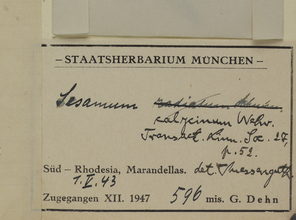 – STAATSHERBARIUM MÜNCHEN –
Sesamum radiatum
calycinum Welw.
Transact. Linn. Soc. 27,
p. 52.
Süd – Rhodesia, Marandellas. det.
1. II. 43
Zugegangen XII. 1947 596 mis. G. Dehn